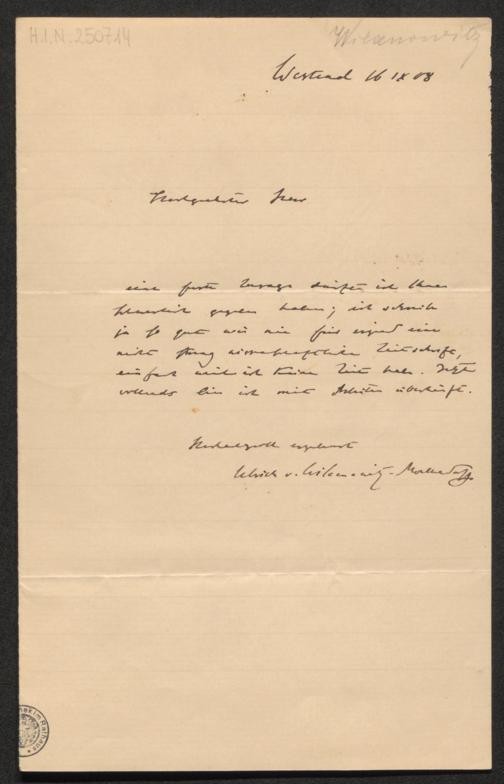 H.I.N. 250714
Wilamowitz
Westend 16 IX 08
Hochgeehrter Herr
eine feste Zusage dürfte ich Ihnen
schwerlich gegeben haben; ich schreibe
ja so gut wie nie für irgend eine
nicht streng wissenschaftliche Zeitschrift,
einfach weil ich keine Zeit habe. Jetzt
vollends bin ich mit Arbeiten überhäuft.
Hochachtungsvoll ergebenst
Ulrich v. Wilamowitz-Moellendorff
im Rathaus